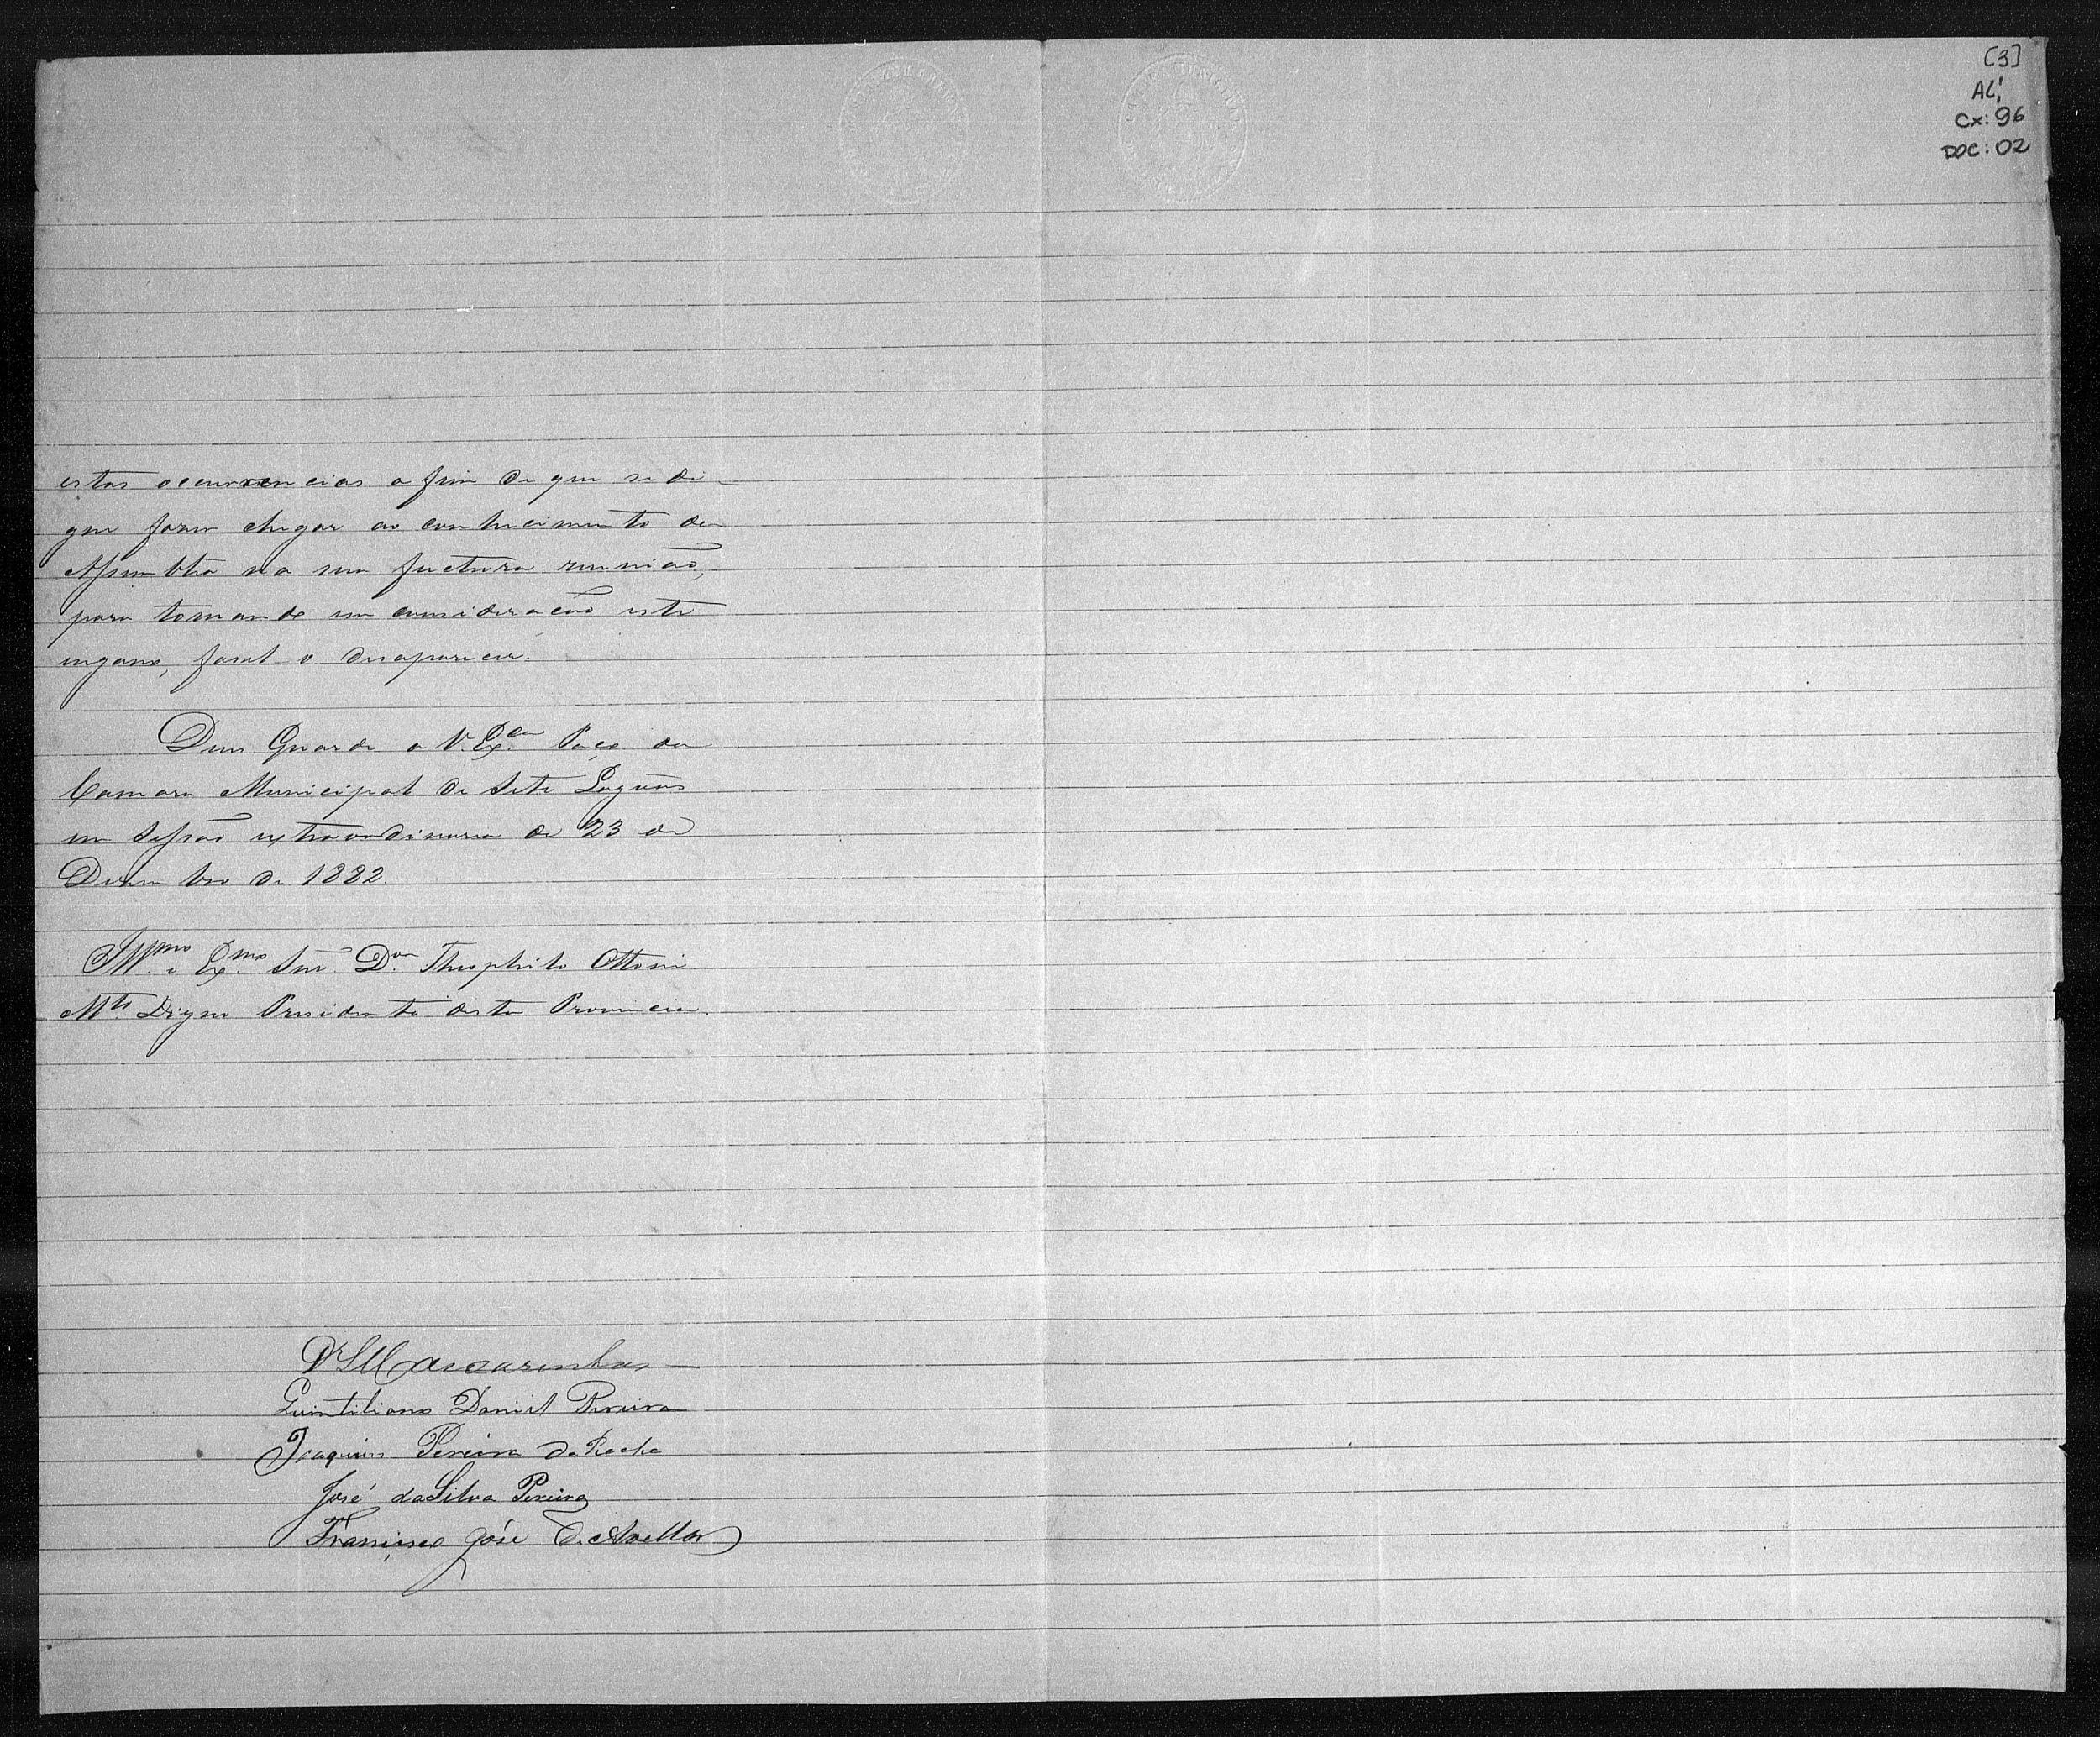 [3]
AL1
Cx: 96
DOC: 02
estas occurrencias a fim de que se di-
gne fazer chegar ao conhecimento da
Assembléa na sua fuctura reunião,
para tomando em consideração este
engano, fasel-o desaparecer.
Deus Guarde a V. Exª. Paço da
Camara Municipal de Sete Lagôas
em Sessão extraordinaria de 23 de
Dezembro de 1882.
Illmo. e Exmo. Snr. Dor. Theophilo Ottoni
M.to Digno Presidente desta Provincia.
Quintiliano Daniel Pereira
Joaquim Pereira da Rocha
José da Silva Pereira
Francisco José C. Avellar